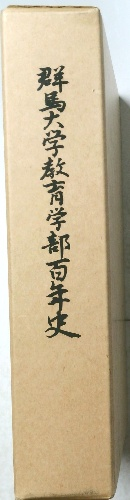 群馬大学教育学部百年史